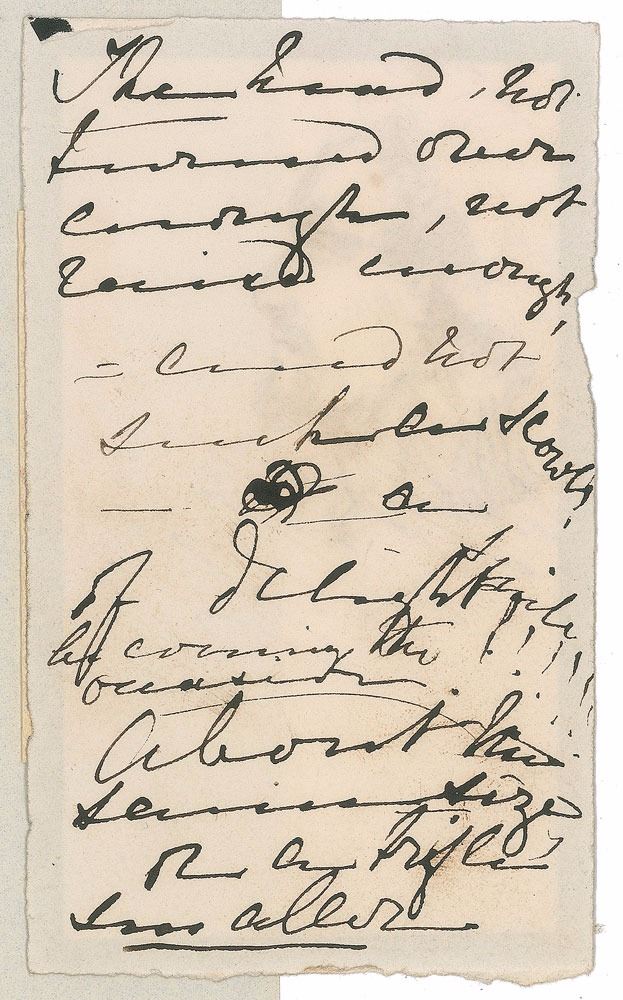 The head, not
turned over
enough, not
raised enough,
= and not
such a scowl,
a
of delight
becoming the !!!!
occasion
About the
same size,
or a trifle
smaller